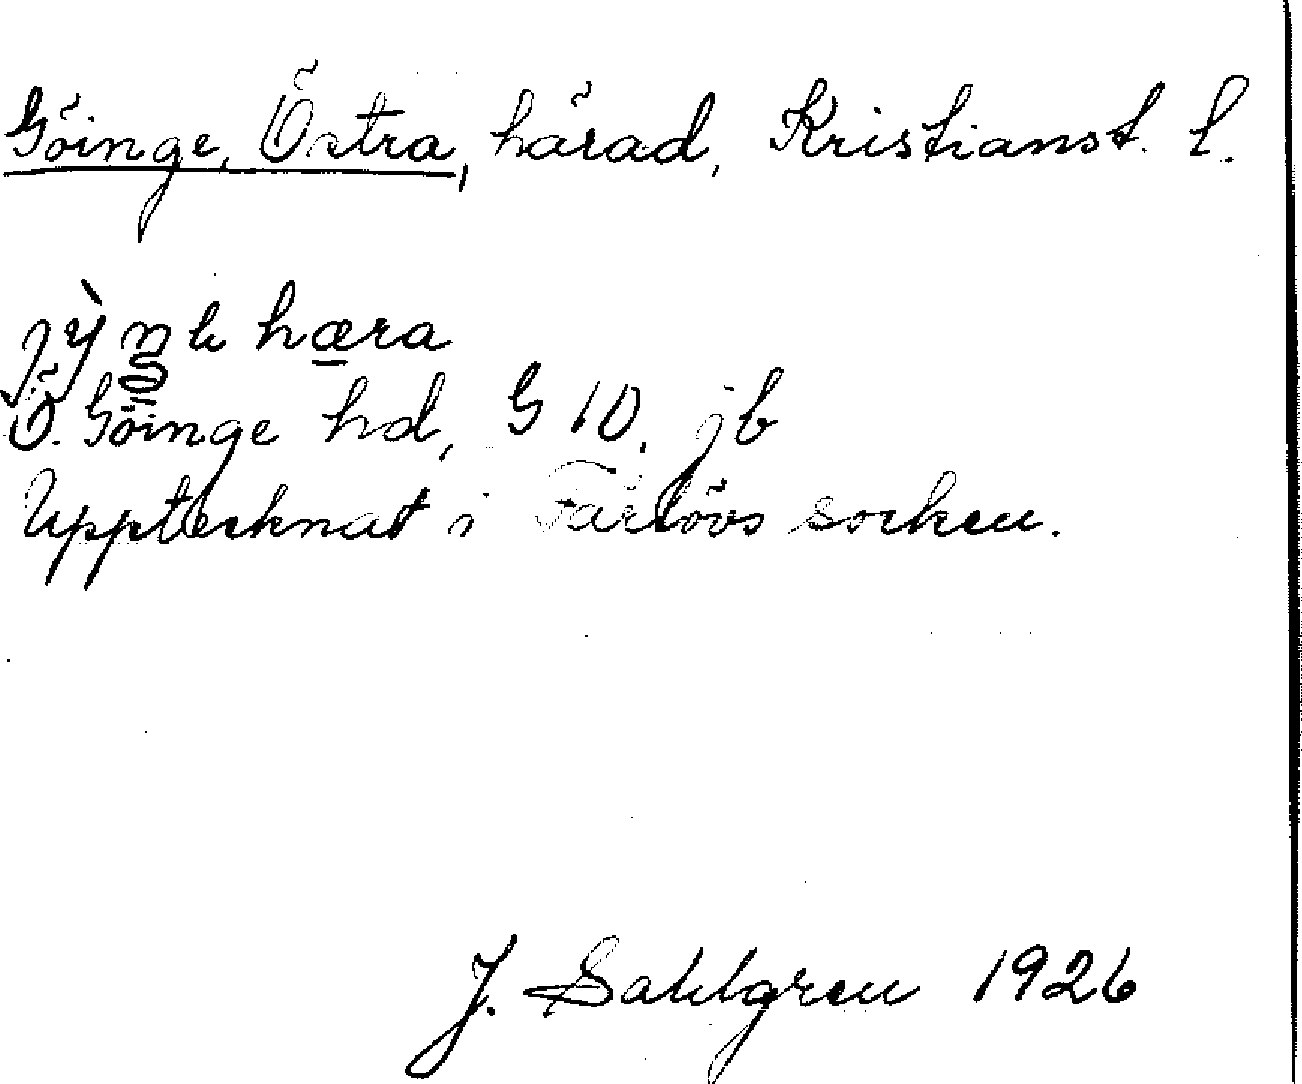 Göinge, Östra, härad, Kristianst. l.
hæra
Ö. Göinge hd, G 10. jb
Upptecknat i Färlövs socken.
J. Sahlgren 1926